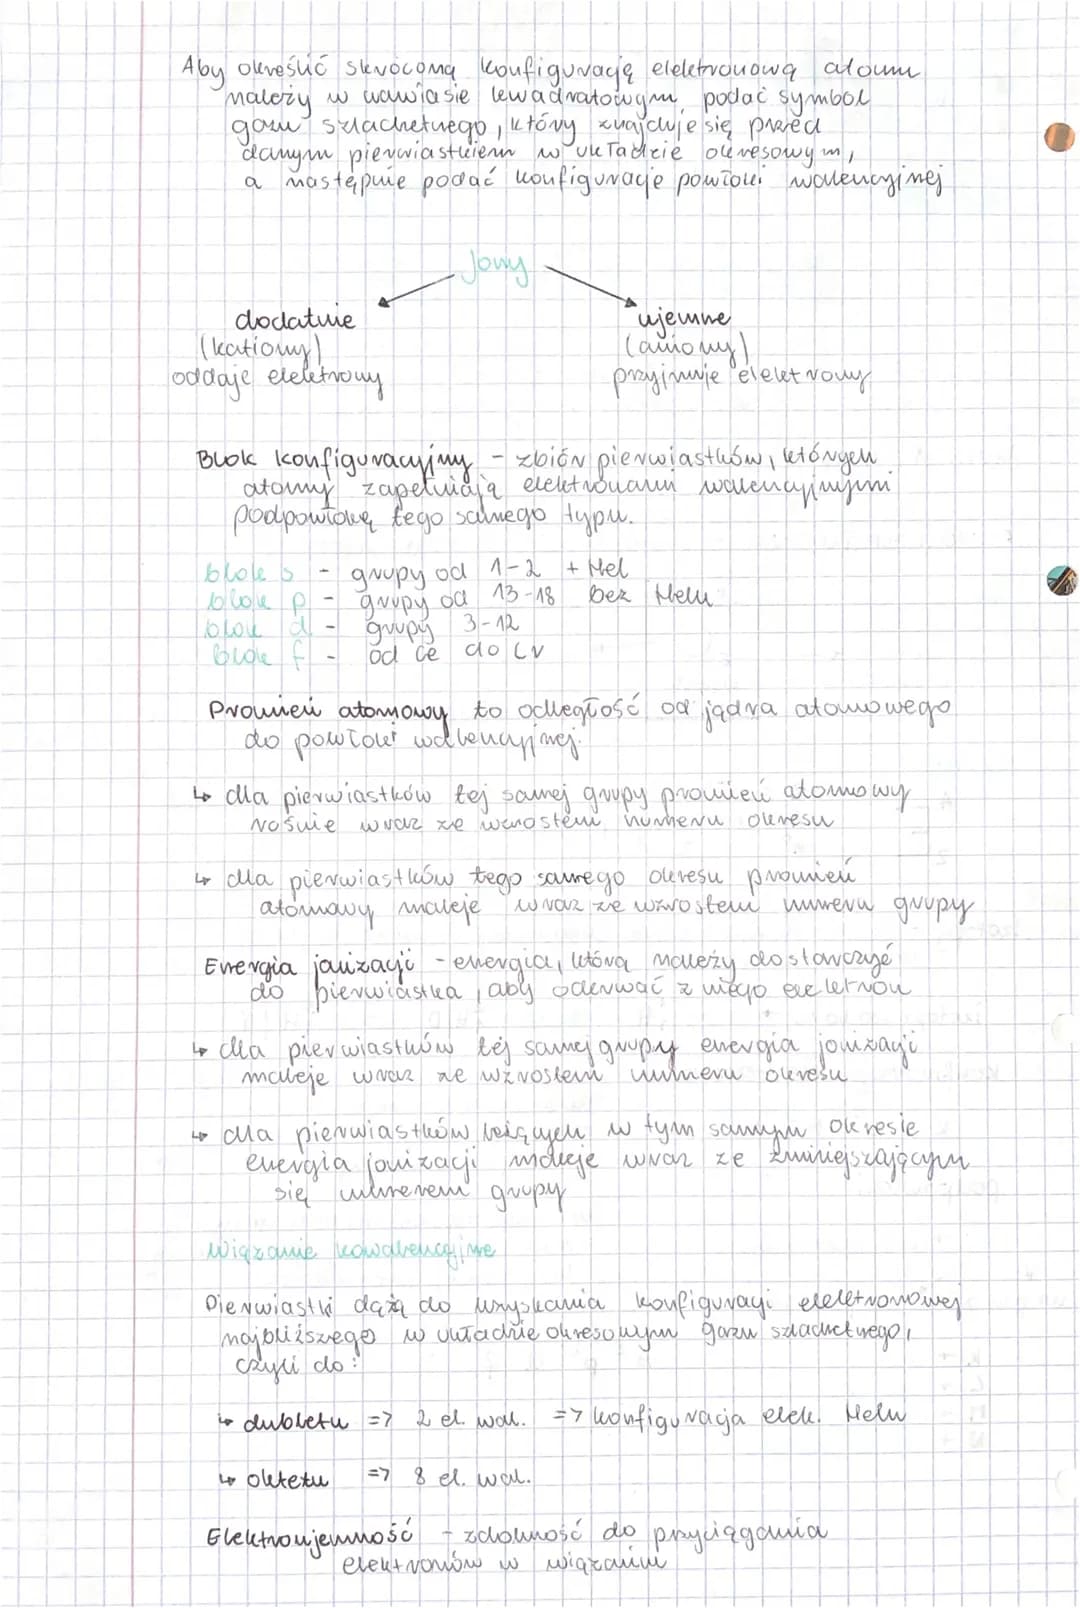 Aby określić skróconą konfigurację elektronową atomu
należy w nawiasie kwadratowym podać symbol
gazu szlachetnego, który znajduje się przed
danym pierwiastkiem w układzie okresowym,
a następnie podać konfigurację powłoki walencyjnej
Jony
dodatnie
(kationy)
oddaje elektrony
ujemne
(aniony)
przyjmuje elektrony
Blok konfiguracyjny - zbiór pierwiastków, których
atomy zapełniają elektronami walencyjnymi
podpowłokę tego samego typu.
blok s - grupy od 1-2 + Hel
blok p - grupy od 13-18 bez Helu
blok d - grupy 3-12
blok f - od Ce do Lv
Promień atomowy to odległość od jądra atomowego
do powłoki walencyjnej.
↳ dla pierwiastków tej samej grupy promień atomowy
rośnie wraz ze wzrostem numeru okresu
↳ dla pierwiastków tego samego okresu promień
atomowy maleje wraz ze wzrostem numeru grupy
Energia jonizacji - energia, którą należy dostarczyć
do pierwiastka, aby oderwać z niego elektron
↳ dla pierwiastków tej samej grupy energia jonizacji
maleje wraz ze wzrostem numeru okresu
↳ dla pierwiastków leżących w tym samym okresie
energia jonizacji maleje wraz ze zmniejszającym
się numerem grupy
Wiązanie kowalencyjne
Pierwiastki dążą do uzyskania konfiguracji elektronowej
najbliższego w układzie okresowym gazu szlachetnego,
czyli do:
↳ dubletu => 2 el. wal. => konfiguracja elek. Helu
↳ oktetu => 8 el. wal.
Elektroujemność - zdolność do przyciągania
elektronów w wiązaniu